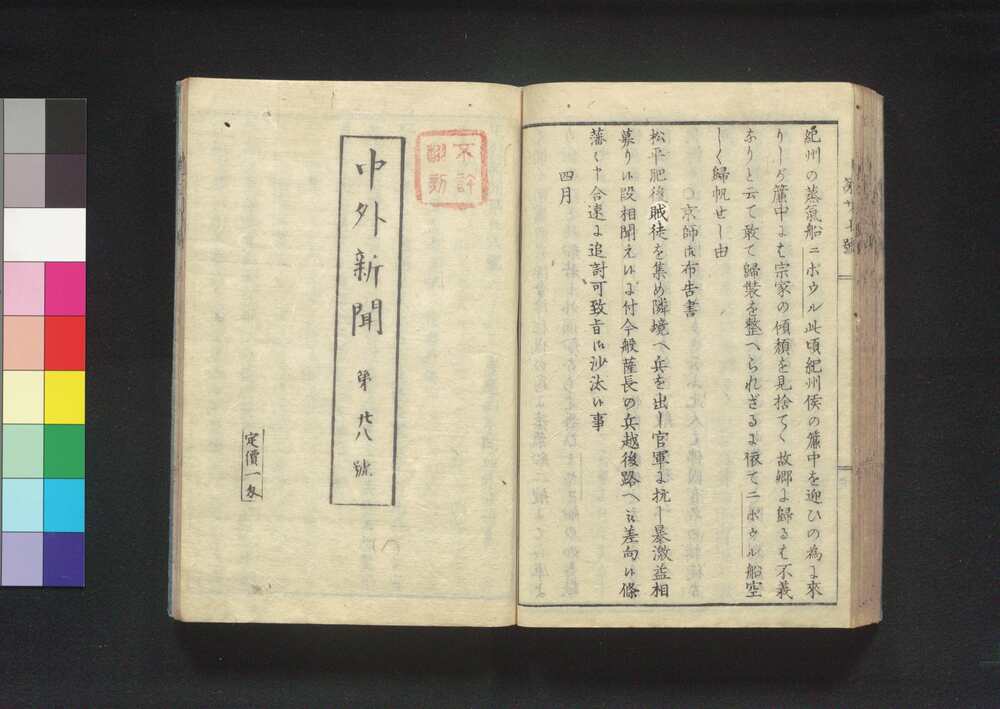 紀州の蒸氣船ニボウル此頃紀州侯の簾中を迎ひの為に來
りしが簾中にも宗家の傾頽を見捨てゝ故郷に歸るも不義
なりと云て敢て歸裝を整へられざるに依てニボウル船空
しく歸帆せし由
○京師御布告書
松平肥後賊徒を集め隣境へ兵を出し官軍に抗し暴激益相
募り候段相聞え候に付今般薩長の兵越後路へ被差向候條
藩々申合速に追討可致旨御沙汰候事
四月
不許
翻刻
中外新聞 第廿八號
定價一匁